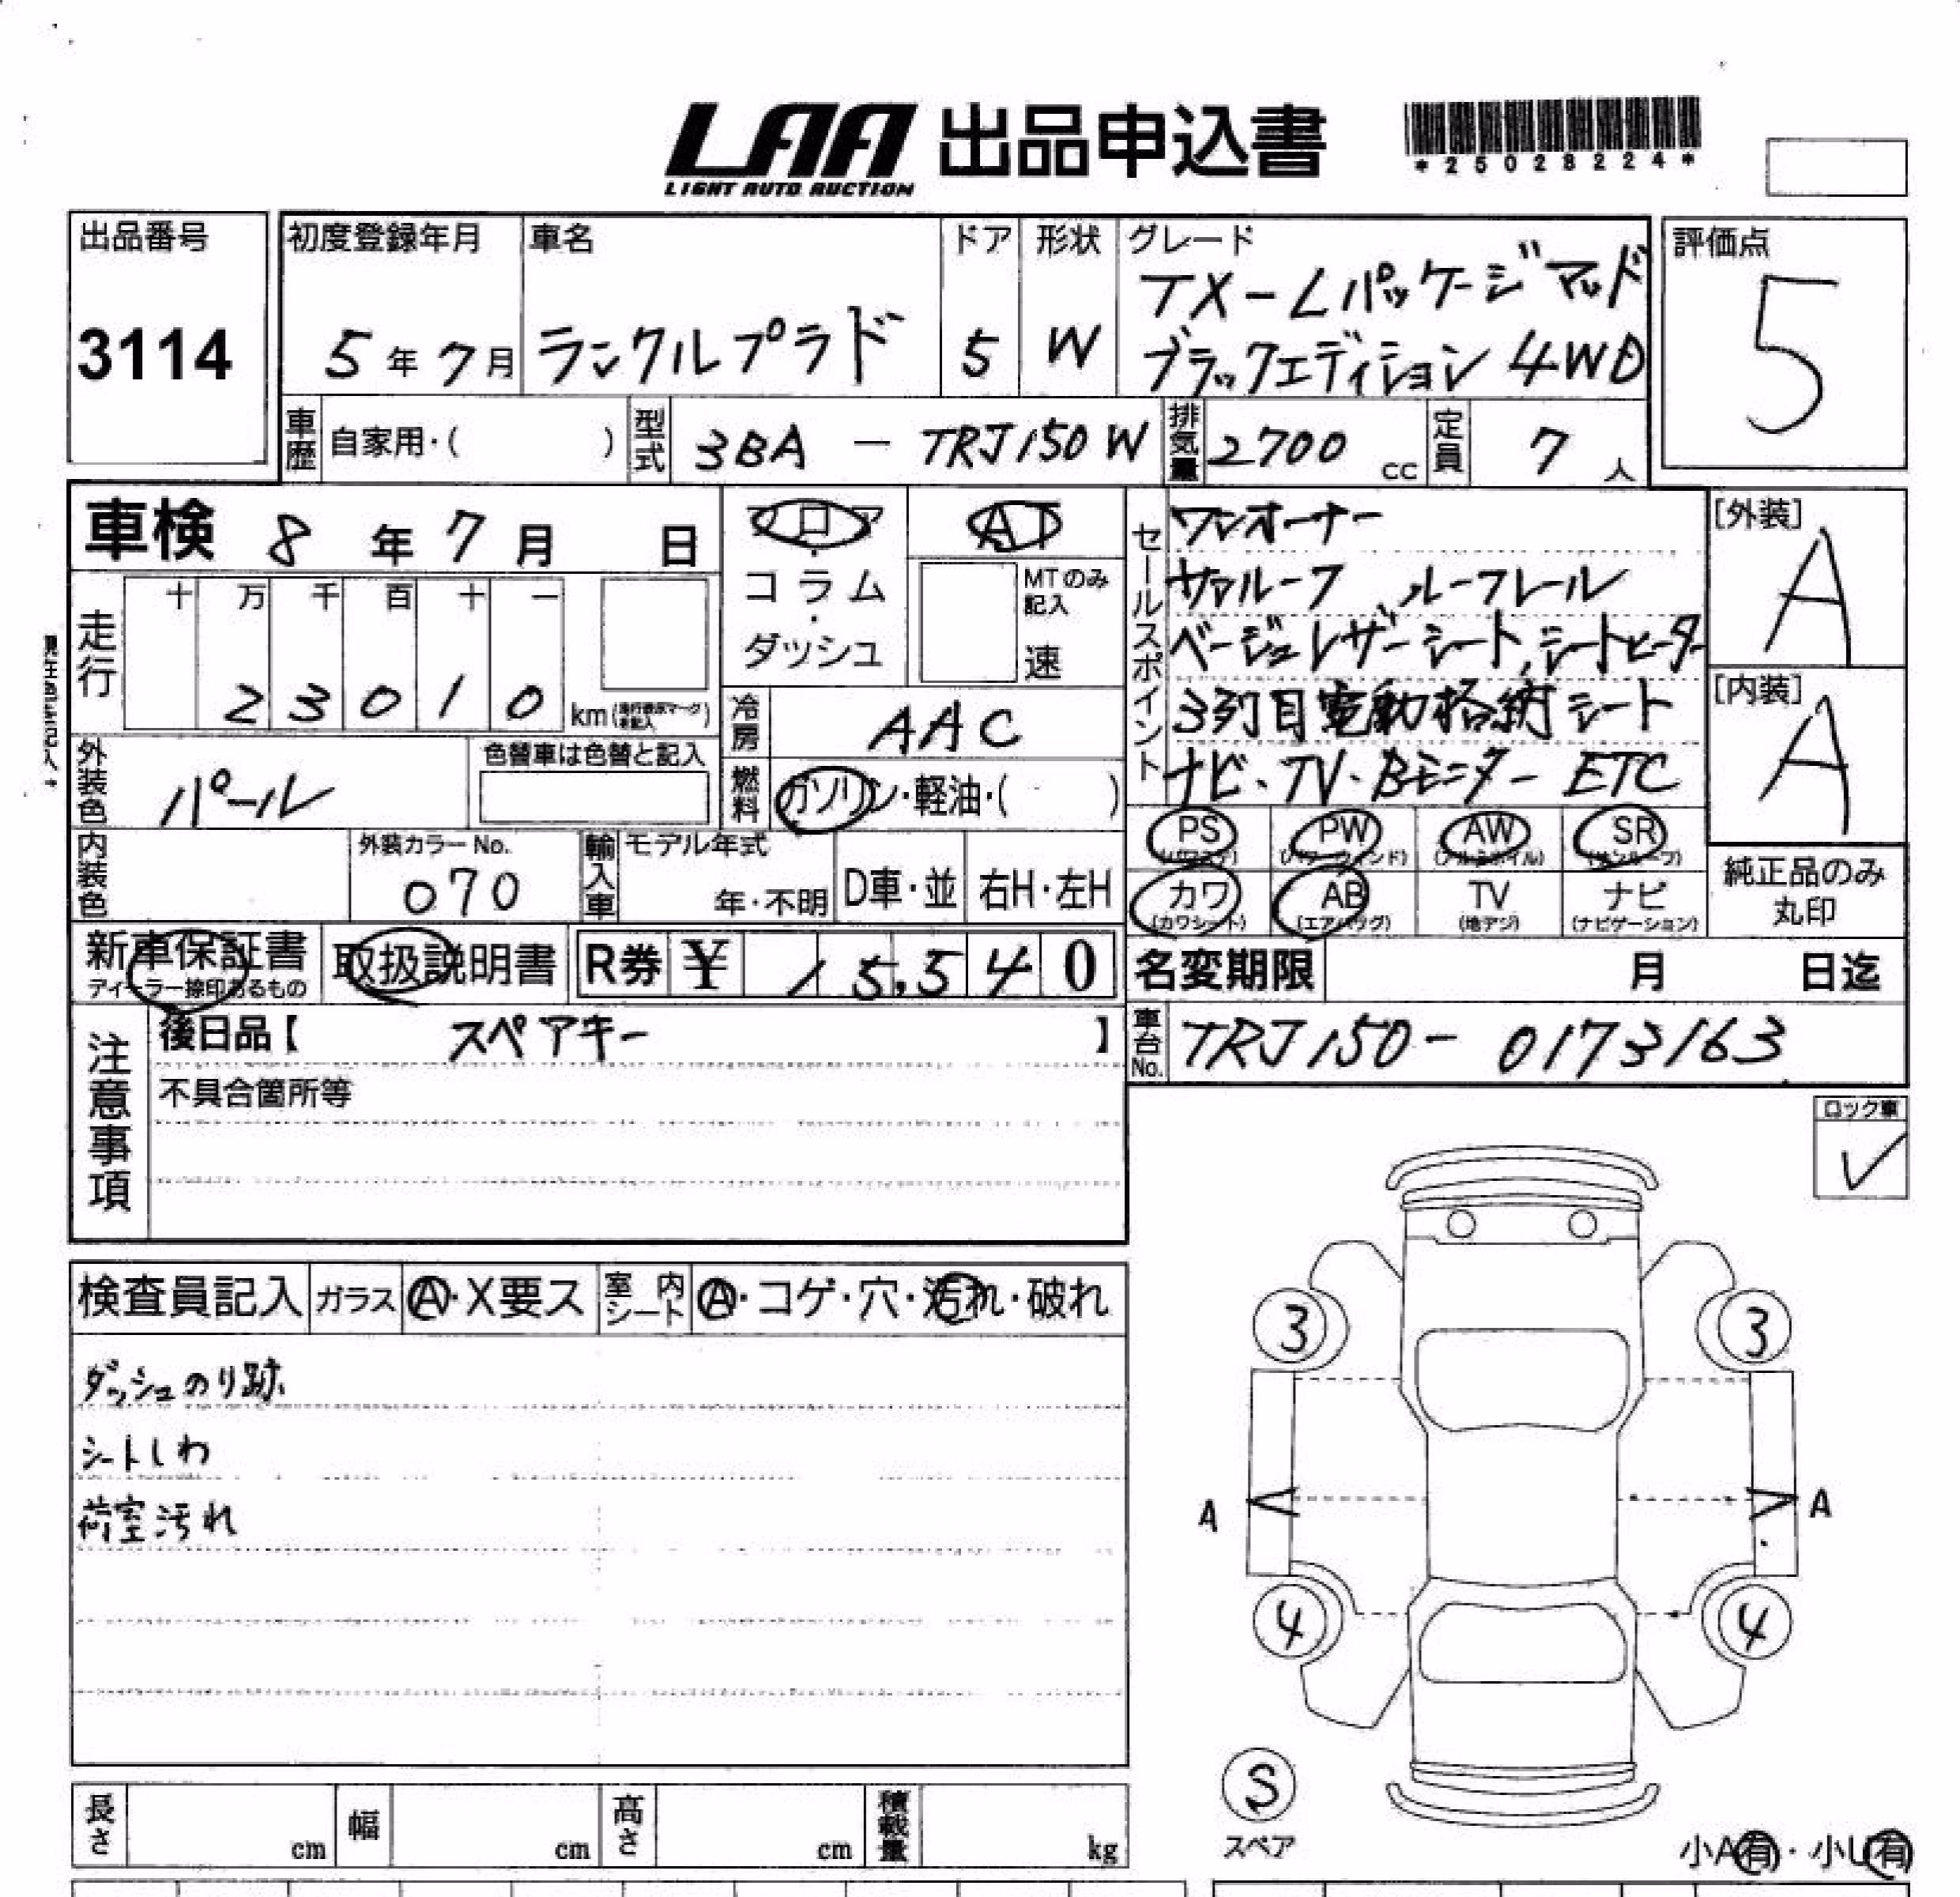 LAA 出品申込書
LIGHT AUTO AUCTION
*25028224*
出品番号
3114
初度登録年月
5年7月
車名
ランクルプラド
ドア
5
形状
W
グレード
TX-Lパッケージマッド
ブラックエディション 4WD
評価点
5
車歴 自家用・( )
型式 3BA - TRJ150W
排気量 2700 cc
定員 7人
車検 8年7月 日
フロア・コラム・ダッシュ
AT
MTのみ記入
速
走行
十 万 千 百 十 一
2 3 0 1 0 km
外装色 パール
色替車は色替と記入
冷房 AAC
燃料 ガソリン・軽油・( )
内装色
外装カラーNo.
070
輸入車
モデル年式
年・不明
D車・並
右H・左H
セールスポイント
ワンオーナー
サンルーフ ルーフレール
ベージュレザーシート,シートヒーター
3列目電動格納シート
ナビ・TV・Bモニター ETC
[外装]
A
[内装]
A
PS (パワステ) PW (パワーウィンド) AW (アルミホイル) SR (サンルーフ)
カワ (カワシート) AB (エアバッグ) TV (地デジ) ナビ (ナビゲーション)
純正品のみ
丸印
新車保証書
ディーラー捺印あるもの
取扱説明書
R券 ¥ 15,540
名変期限 月 日迄
車台No. TRJ150- 0173163
注意事項
後日品【 スペアキー 】
不具合箇所等
ロック車
✓
検査員記入 ガラス A・X要ス 室内シート A・コゲ・穴・汚れ・破れ
ダッシュのり跡
シートしわ
荷室汚れ
3 3
A A
4 4
S
スペア
小A有・小U有
長さ cm 幅 cm 高さ cm 積載量 kg